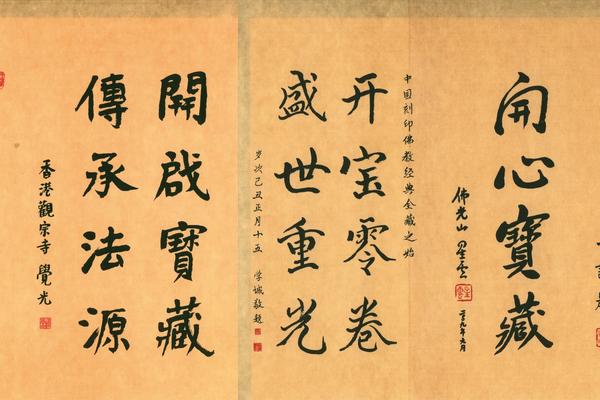 開心寶藏
佛光山 星雲
中国刻印佛教经典全藏之始
开宝零卷
盛世重光
岁次己丑正月十五 学诚敬题
開啟寶藏
傳承法源
香港觀宗寺 覺光